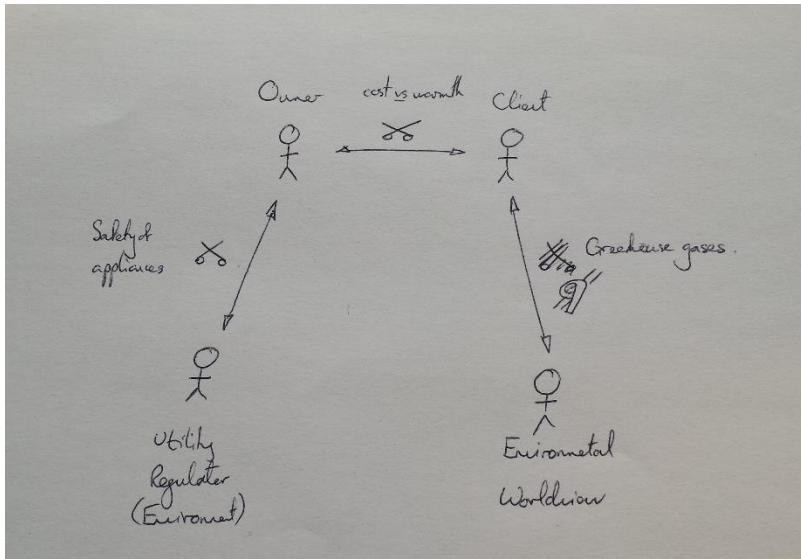 Owner
cost vs warmth
Client
Safety of
appliances
Greehouse gases.
Utility
Regulater
(Enviroment)
Enviormetal
Worldview